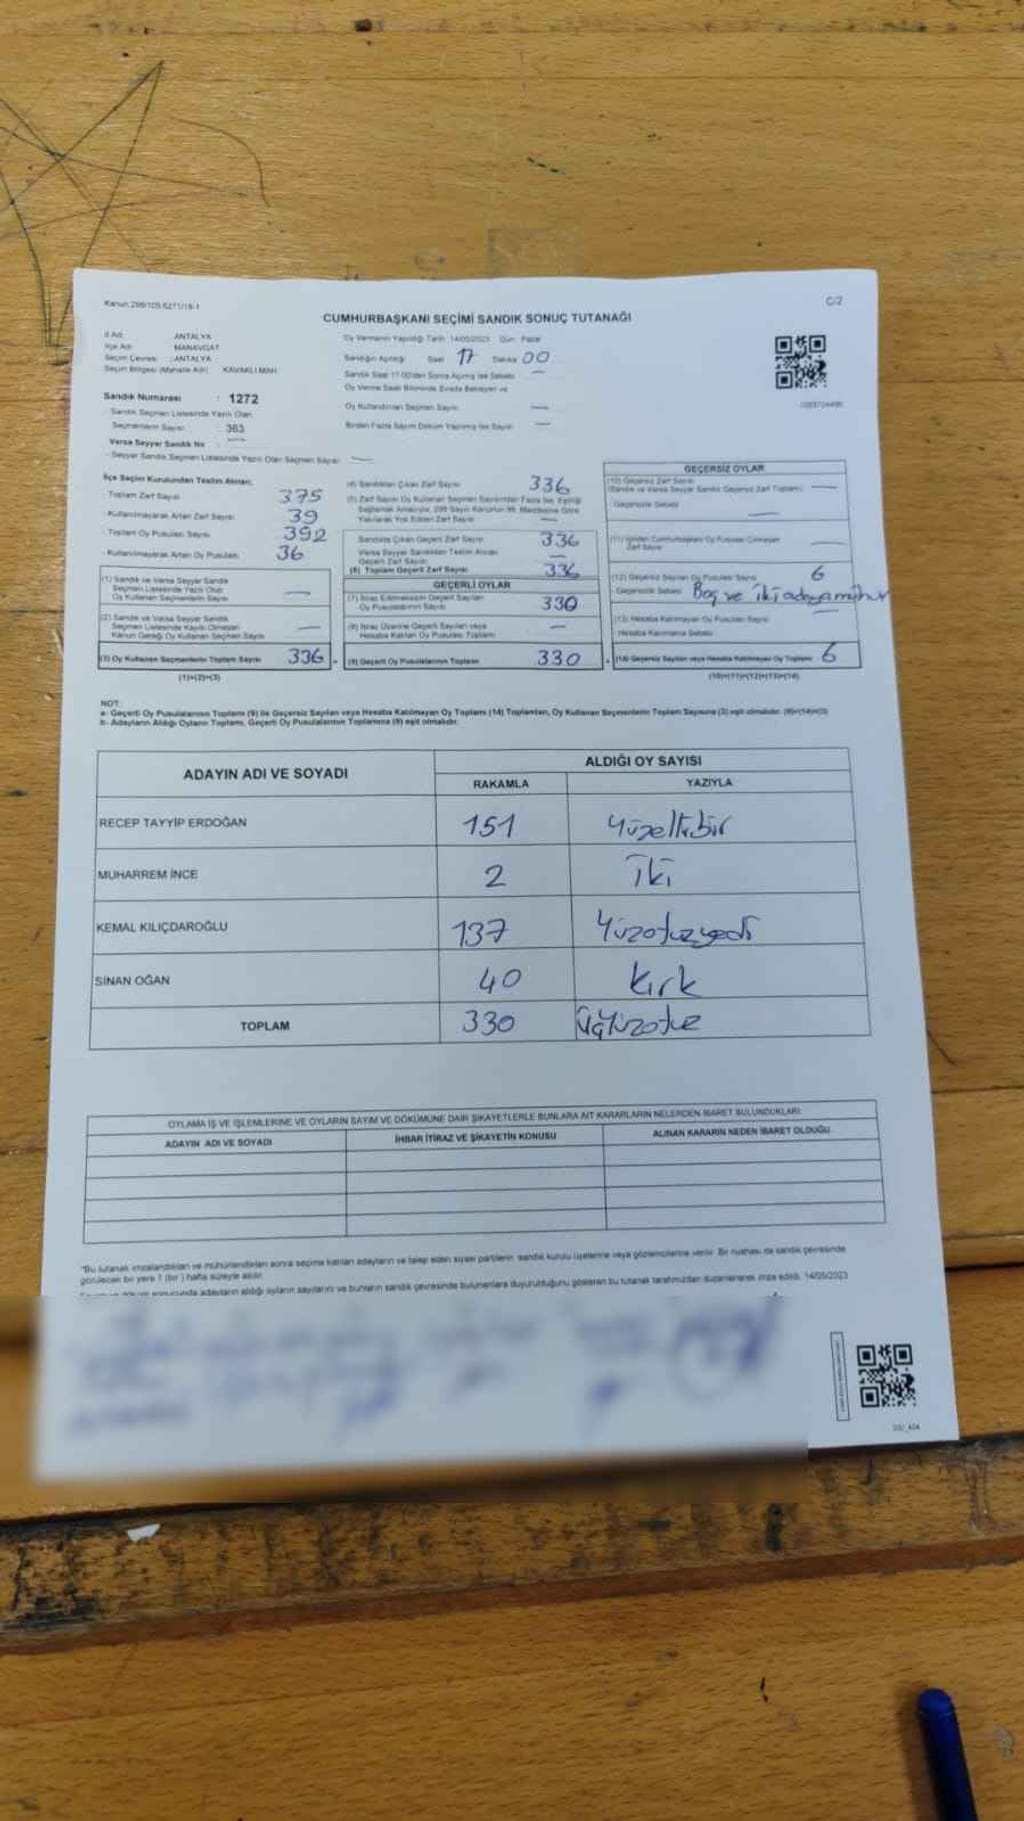 Kanun: 298/105 6271/19-1
C/2
CUMHURBAŞKANI SEÇİMİ SANDIK SONUÇ TUTANAĞI
İl Adı : ANTALYA
İlçe Adı : MANAVGAT
Seçim Çevresi : ANTALYA
Seçim Bölgesi (Mahalle Adı) : KAVAKLI MAH.
Sandık Numarası : 1272
- Sandık Seçmen Listesinde Yazılı Olan
Seçmenlerin Sayısı : 363
Varsa Seyyar Sandık No :
- Seyyar Sandık Seçmen Listesinde Yazılı Olan Seçmen Sayısı : —
Oy Vermenin Yapıldığı Tarih: 14/05/2023 Gün: Pazar
Sandığın Açıldığı Saat 17 Dakika 00
Sandık Saat 17:00'den Sonra Açılmış İse Sebebi —
Oy Verme Saati Bitiminde Sırada Bekleyen ve
Oy Kullandırılan Seçmen Sayısı —
Birden Fazla Sayım Döküm Yapılmış İse Sayısı —
İlçe Seçim Kurulundan Teslim Alınan;
- Toplam Zarf Sayısı 375
- Kullanılmayarak Artan Zarf Sayısı 39
- Toplam Oy Pusulası Sayısı 392
- Kullanılmayarak Artan Oy Pusulası 36
(1) Sandık ve Varsa Seyyar Sandık
Seçmen Listesinde Yazılı Olup
Oy Kullanan Seçmenlerin Sayısı —
(2) Sandık ve Varsa Seyyar Sandık
Seçmen Listesinde Kaydı Olmayan
Kanun Gereği Oy Kullanan Seçmen Sayısı —
(3) Oy Kullanan Seçmenlerin Toplam Sayısı 336
(1)+(2)=(3)
(4) Sandıktan Çıkan Zarf Sayısı 336
(5) Zarf Sayısı Oy Kullanan Seçmen Sayısından Fazla İse, Eşitliği
Sağlamak Amacıyla, 298 Sayılı Kanunun 98. Maddesine Göre
Yakılarak Yok Edilen Zarf Sayısı —
Sandıkta Çıkan Geçerli Zarf Sayısı 336
Varsa Seyyar Sandıktan Teslim Alınan
Geçerli Zarf Sayısı —
(6) Toplam Geçerli Zarf Sayısı 336
GEÇERLİ OYLAR
(7) İtiraz Edilmeksizin Geçerli Sayılan
Oy Pusulalarının Sayısı 330
(8) İtiraz Üzerine Geçerli Sayılan veya
Hesaba Katılan Oy Pusulası Toplamı —
(9) Geçerli Oy Pusulalarının Toplamı 330
GEÇERSİZ OYLAR
(10) Geçersiz Zarf Sayısı
(Sandık ve Varsa Seyyar Sandık Geçersiz Zarf Toplamı) —
Geçersizlik Sebebi —
(11) İçinden Cumhurbaşkanı Oy Pusulası Çıkmayan
Zarf Sayısı —
(12) Geçersiz Sayılan Oy Pusulası Sayısı 6
Geçersizlik Sebebi Boş ve iki adaya mühür
(13) Hesaba Katılmayan Oy Pusulası Sayısı —
Hesaba Katılmama Sebebi
(14) Geçersiz Sayılan veya Hesaba Katılmayan Oy Toplamı 6
(10)+(11)+(12)+(13)=(14)
NOT:
a- Geçerli Oy Pusulalarının Toplamı (9) ile Geçersiz Sayılan veya Hesaba Katılmayan Oy Toplamı (14) Toplamları, Oy Kullanan Seçmenlerin Toplam Sayısına (3) eşit olmalıdır. (9)+(14)=(3)
b- Adayların Aldığı Oyların Toplamı, Geçerli Oy Pusulalarının Toplamına (9) eşit olmalıdır.
ADAYIN ADI VE SOYADI ALDIĞI OY SAYISI
RAKAMLA YAZIYLA
RECEP TAYYİP ERDOĞAN 151 Yüzellibir
MUHARREM İNCE 2 İki
KEMAL KILIÇDAROĞLU 137 Yüzotuzyedi
SİNAN OĞAN 40 Kırk
TOPLAM 330 Üçyüzotuz
OYLAMA İŞ VE İŞLEMLERİNE VE OYLARIN SAYIM VE DÖKÜMÜNE DAİR ŞİKAYETLERLE BUNLARA AİT KARARLARIN NELERDEN İBARET BULUNDUKLARI
ADAYIN ADI VE SOYADI İHBAR İTİRAZ VE ŞİKAYETİN KONUSU ALINAN KARARIN NEDEN İBARET OLDUĞU
"Bu tutanak imzalandıktan ve mühürlendikten sonra seçime katılan adayların ve talep eden siyasi partilerin sandık kurulu üyelerine veya gözlemcilerine verilir. Bir nüshası da sandık çevresinde
görülecek bir yere 1 (bir) hafta süreyle asılır.
sonucunda adayların aldığı oyların sayılarını ve bunların sandık çevresinde bulunanlara duyurulduğunu gösteren bu tutanak tarafımızdan düzenlenerek imza edildi. 14/05/2023